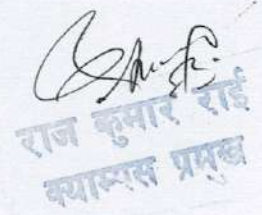 राज कुमार राई
क्याम्पस प्रमुख